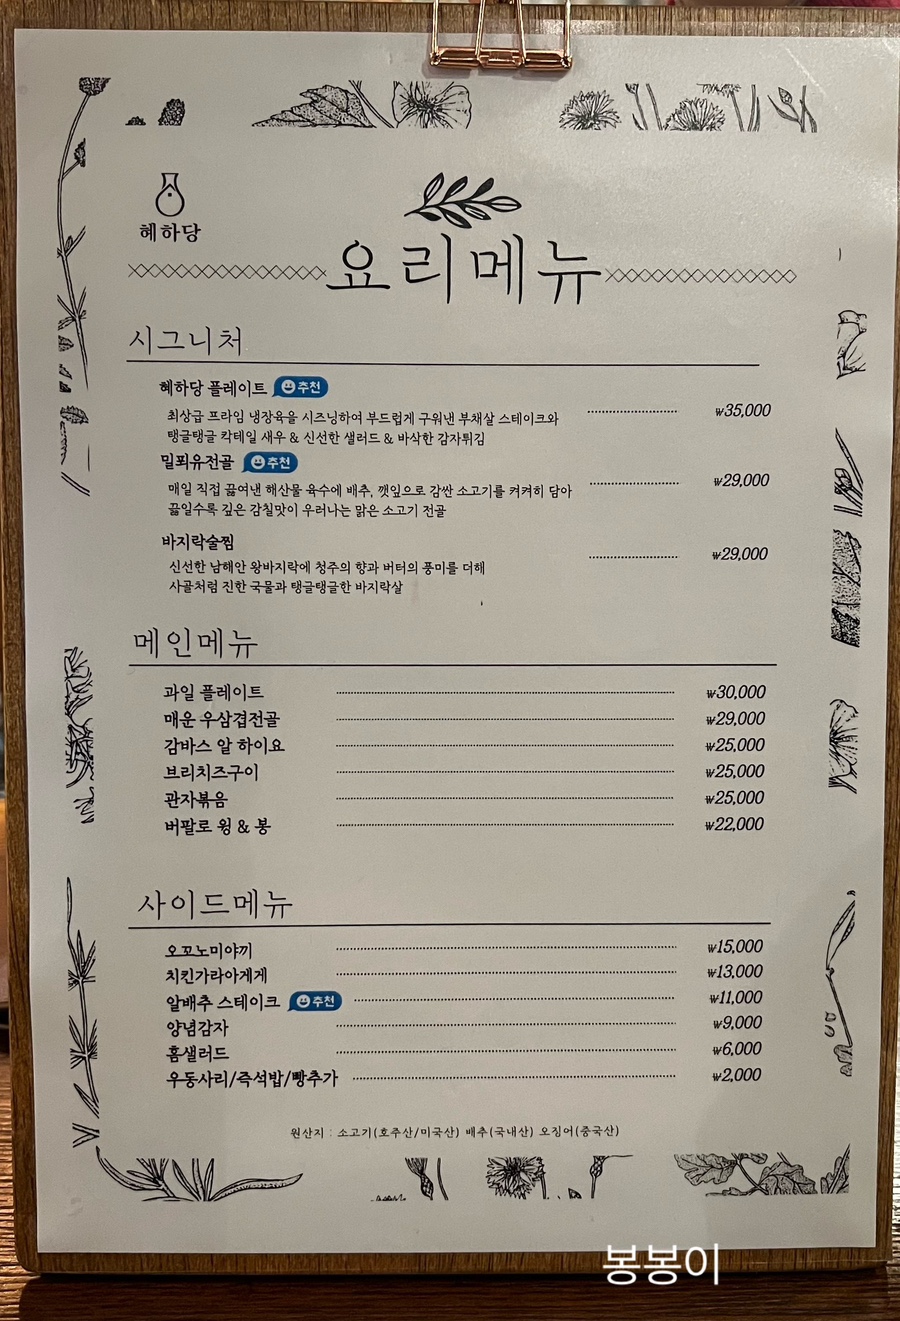 혜하당
요리메뉴
시그니처
혜하당 플레이트 추천
최상급 프라임 냉장육을 시즈닝하여 부드럽게 구워낸 부채살 스테이크와 ₩35,000
탱글탱글 칵테일 새우 & 신선한 샐러드 & 바삭한 감자튀김
밀푀유전골 추천
매일 직접 끓여낸 해산물 육수에 배추, 깻잎으로 감싼 소고기를 켜켜히 담아 ₩29,000
끓일수록 깊은 감칠맛이 우러나는 맑은 소고기 전골
바지락술찜
신선한 남해안 왕바지락에 청주의 향과 버터의 풍미를 더해 ₩29,000
사골처럼 진한 국물과 탱글탱글한 바지락살
메인메뉴
과일 플레이트 ₩30,000
매운 우삼겹전골 ₩29,000
감바스 알 하이요 ₩25,000
브리치즈구이 ₩25,000
관자볶음 ₩25,000
버팔로 윙 & 봉 ₩22,000
사이드메뉴
오꼬노미야끼 ₩15,000
치킨가라아게게 ₩13,000
알배추 스테이크 추천 ₩11,000
양념감자 ₩9,000
홈샐러드 ₩6,000
우동사리/즉석밥/빵추가 ₩2,000
원산지 : 소고기(호주산/미국산) 배추(국내산) 오징어(중국산)
봉봉이